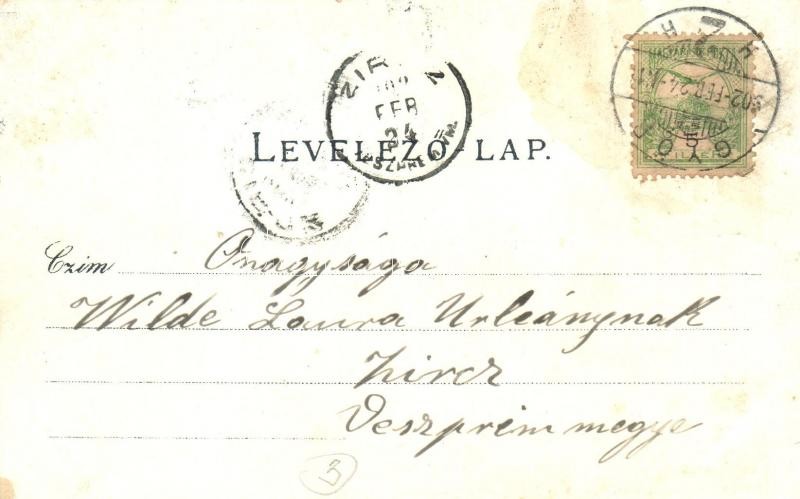 GYŐR
902 FEB 24
5
ZIRCZ
902
FEB
24
LEVELEZŐ-LAP.
Czim Őnagysága
Wilde Laura Urleánynak
Zircz
Veszprém megye
3